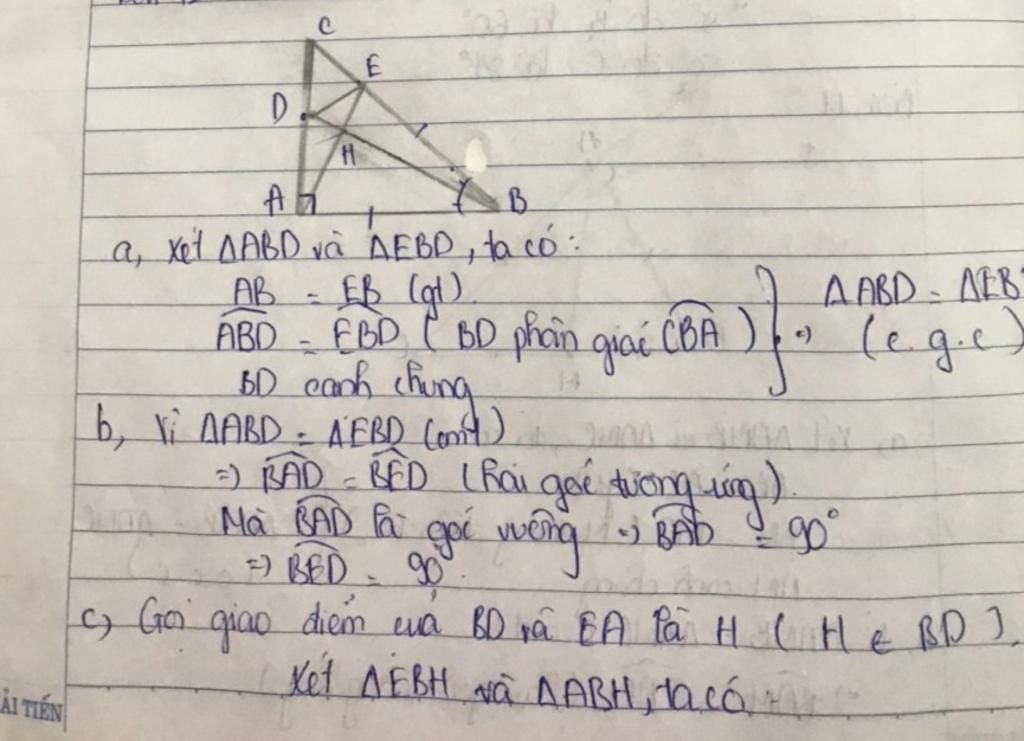 C
E
D
H
A
B
a, xét ΔABD và ΔEBD, ta có:
AB = EB (gt).
ABD = EBD ( BD phân giác CBA ) } => ΔABD = ΔEB
BD cạnh chung (c.g.c)
b, Vì ΔABD = ΔEBD (cmt)
=> BAD = BED (hai góc tương ứng).
Mà BAD là góc vuông => BAD = 90°
=> BED = 90°.
c, Gọi giao điểm của BD và EA là H ( H ∈ BD ).
Xét ΔEBH và ΔABH, ta có
ẢI TIẾN